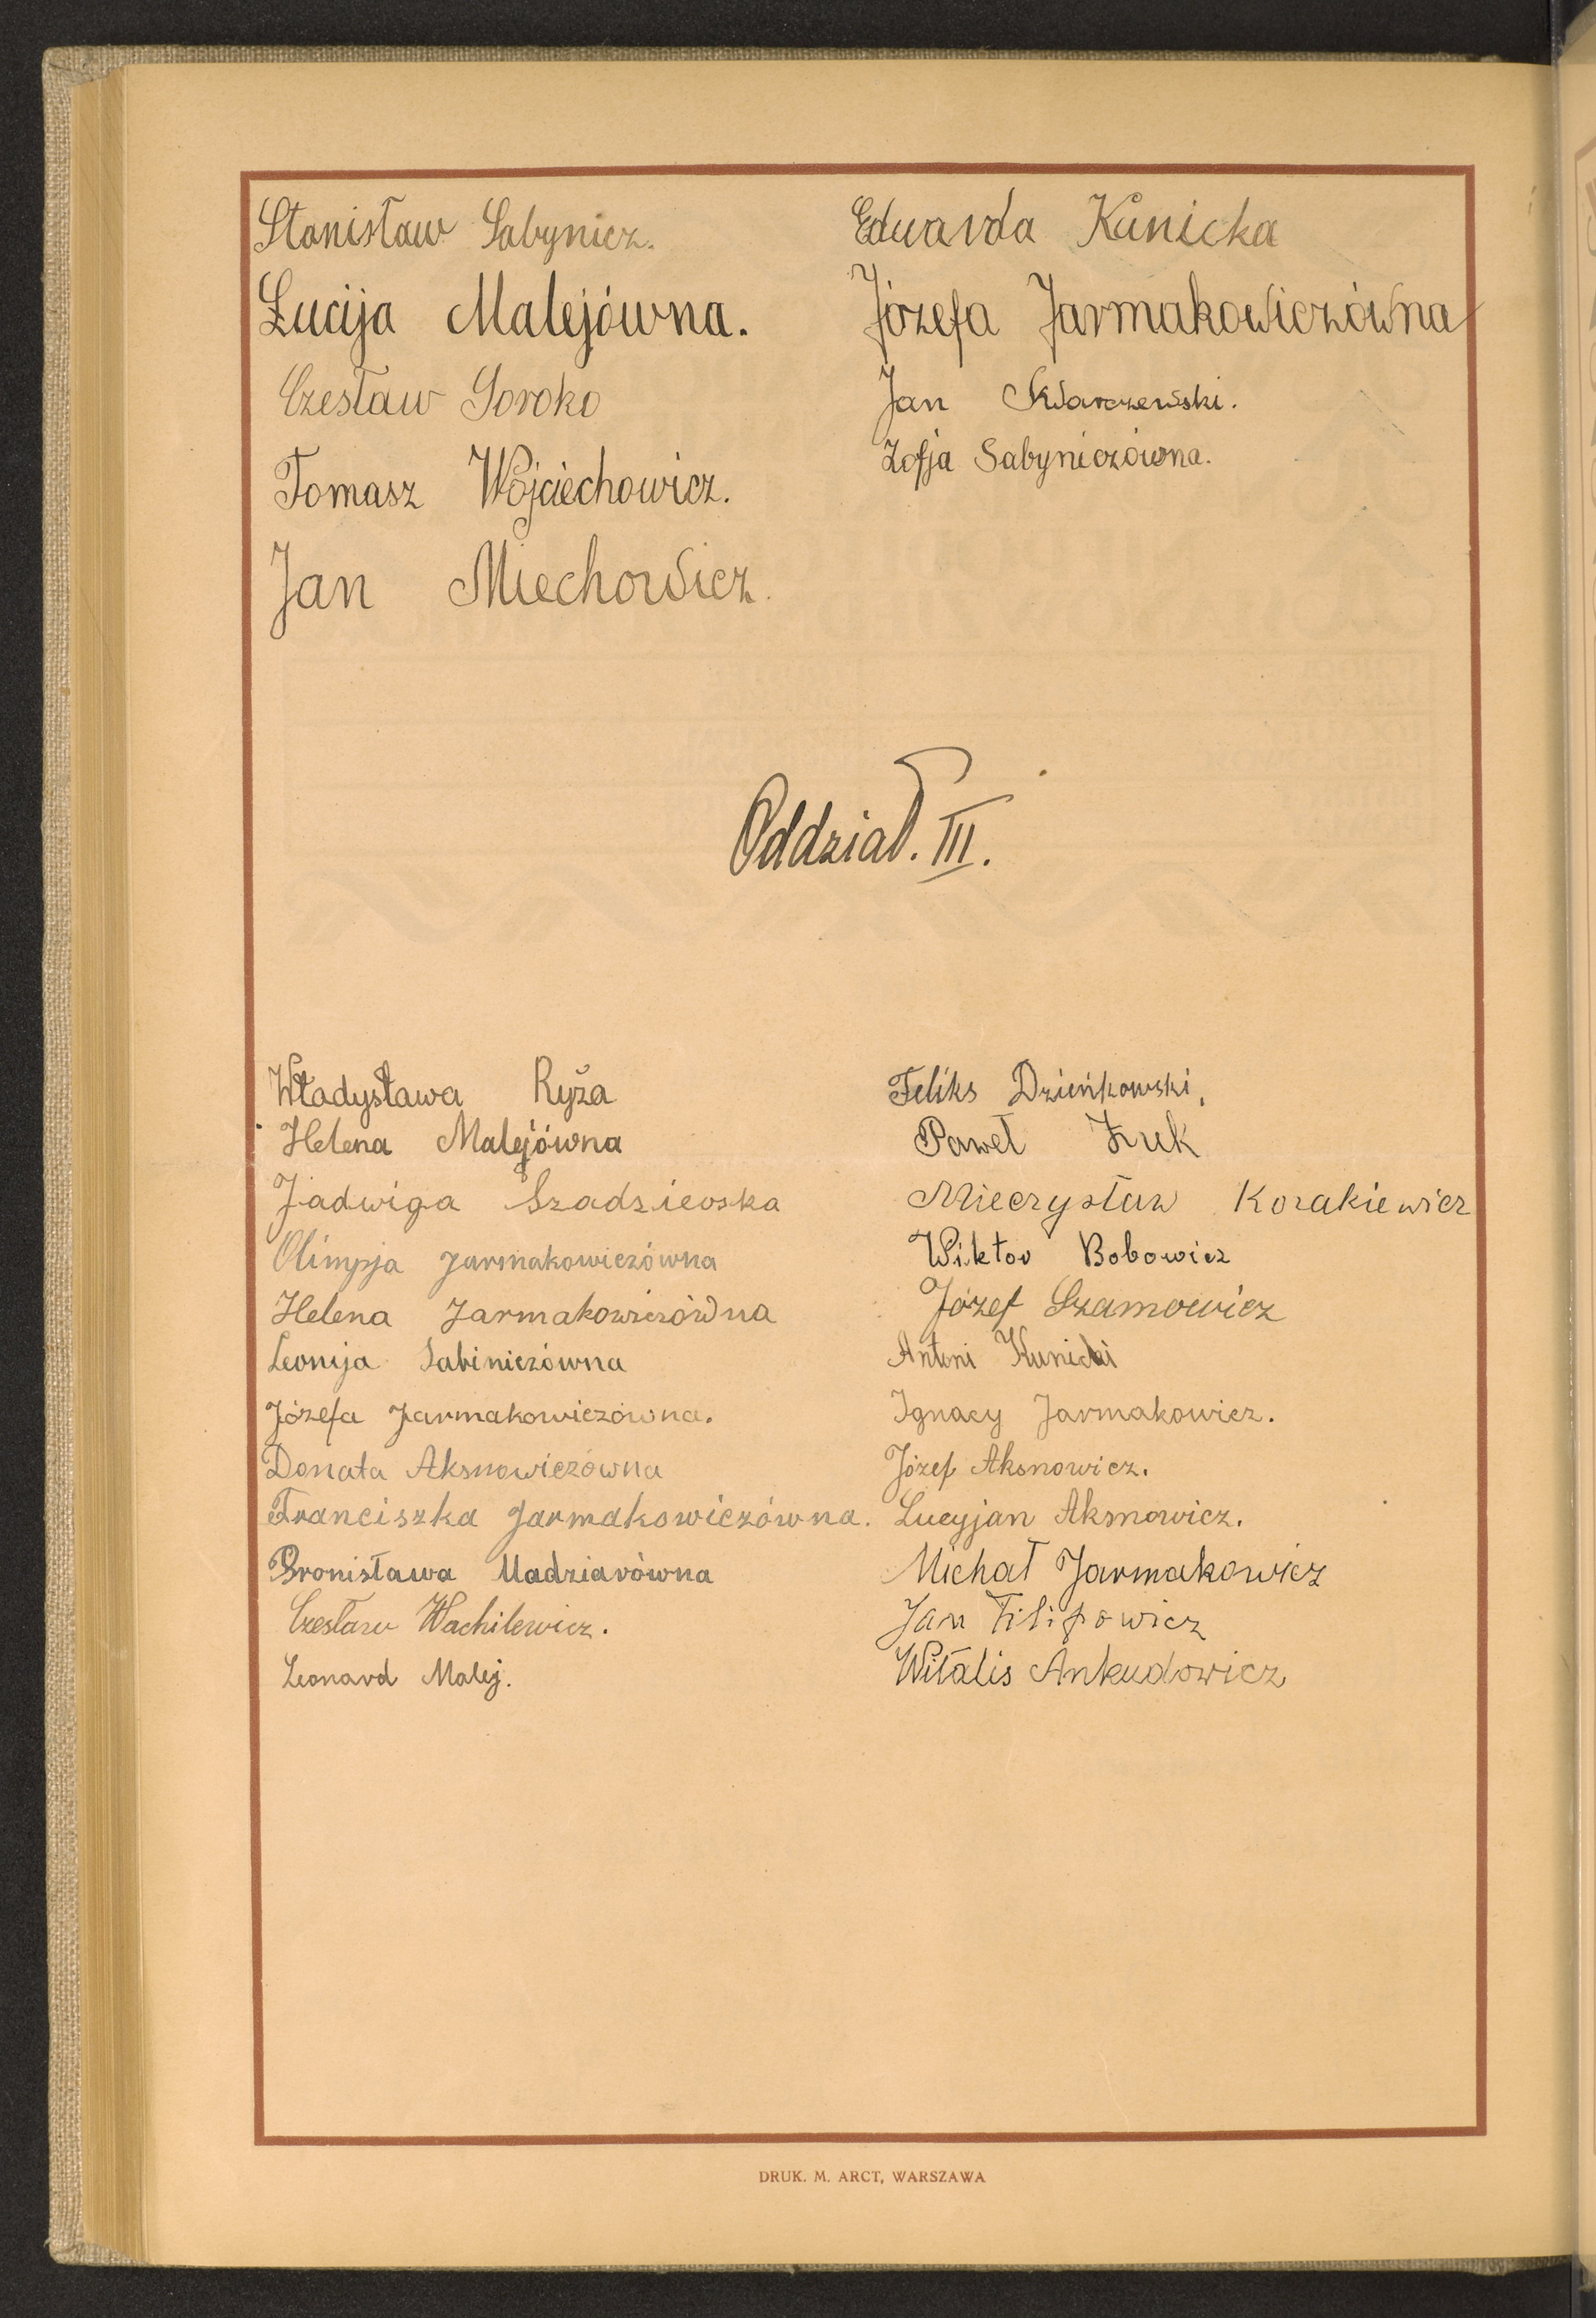 Stanisław Sabynicz.
Łucija Malejówna.
Czesław Soroko
Tomasz Wojciechowicz.
Jan Miechowicz.
Edwarda Kunicka
Józefa Jarmakowiczówna
Jan Skwarczewski.
Zofja Sabyniczówna.
Oddział. III.
Władysława Ryża
Helena Malejówna
Jadwiga Szadziewska
Olimpja Jarmakowiczówna
Helena Jarmakowiczówna
Leonija Sabiniczówna
Józefa Jarmakowiczówna.
Donata Aksnowiczówna
Franciszka Jarmakowiczówna.
Bronisława Madziarówna
Czesław Wachilewicz.
Leonard Malej.
Feliks Dzieńkowski,
Paweł Żuk
Mieczysław Kozakiewicz
Wiktor Bobowicz
Józef Szamowicz
Antoni Kunicki
Ignacy Jarmakowicz.
Józef Aksnowicz.
Lucyjan Aksnowicz.
Michał Jarmakowicz
Jan Filipowicz
Witalis Ankudowicz
DRUK. M. ARCT, WARSZAWA